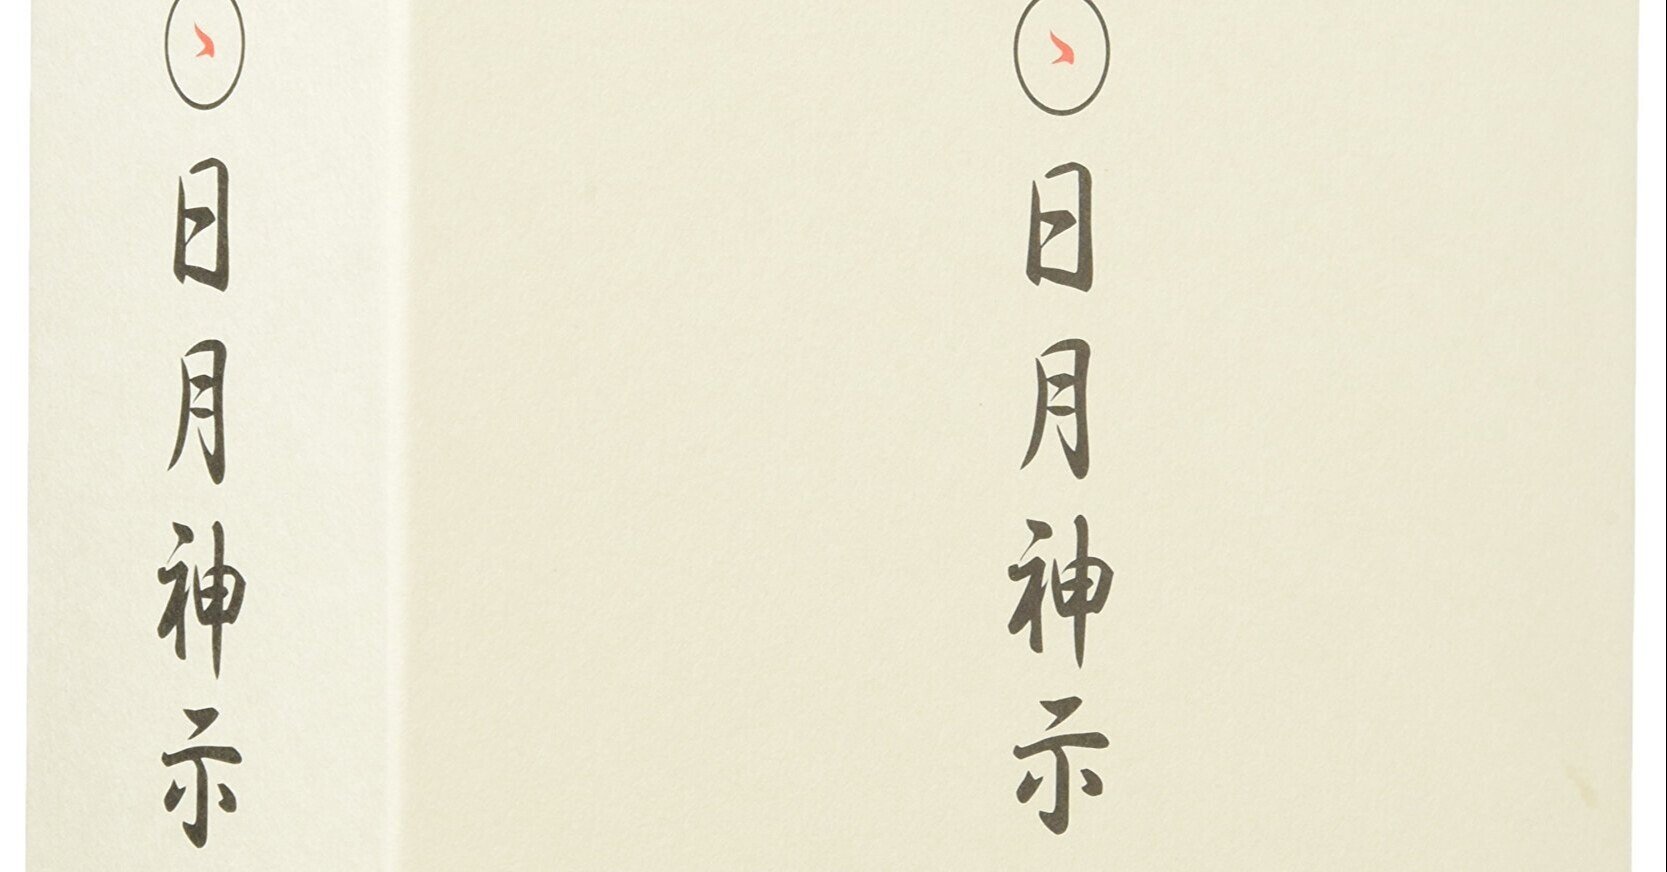 日月神示
日月神示